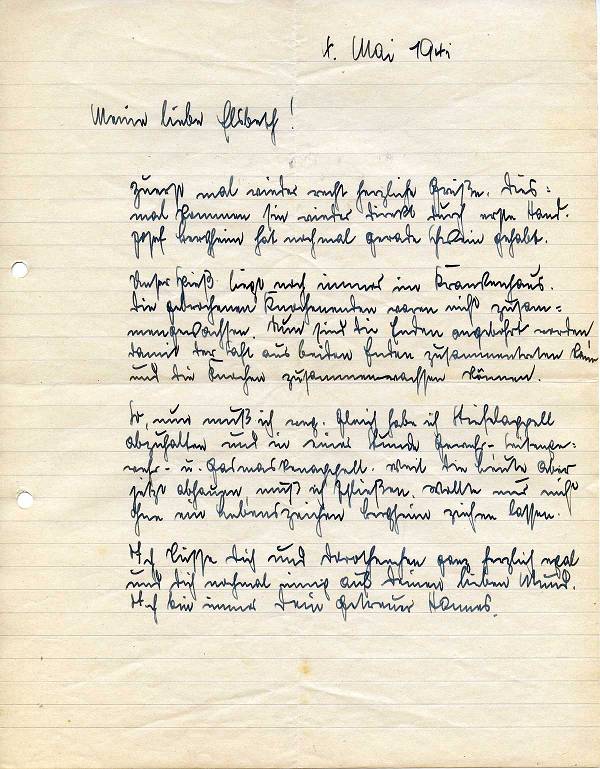 Mai 1941
Meine liebe Elsbeth!
Zuerst mal wieder recht herzliche Grüße. Dies=
mal kommen sie wieder direkt durch erste Hand.
Josef Bergheim hat nochmal gerade Schwein gehabt.
Unser Spieß liegt noch immer im Krankenhaus.
Die gebrochenen Knochenenden waren nicht zusam=
mengewachsen. Nun sind die Enden angebohrt worden
damit der Saft aus beiden Enden zusammentreten kann
und die Knochen zusammenwachsen können.
So, nun muß ich weg. Gleich habe ich Stiefelappell
abzuhalten und in einer Stunde Gewehr-, Seitenge=
wehr- u. Gasmaskenappell. Weil die Leute aber
jetzt abhauen, muß ich schließen. Wollte nur nicht
ohne ein Lebenszeichen Bergheim ziehen lassen.
Ich küsse Dich und Dorotheechen ganz herzlich mal
und Dich nochmal innig auf Deinen lieben Mund.
Ich bin immer Dein getreuer Hannes.